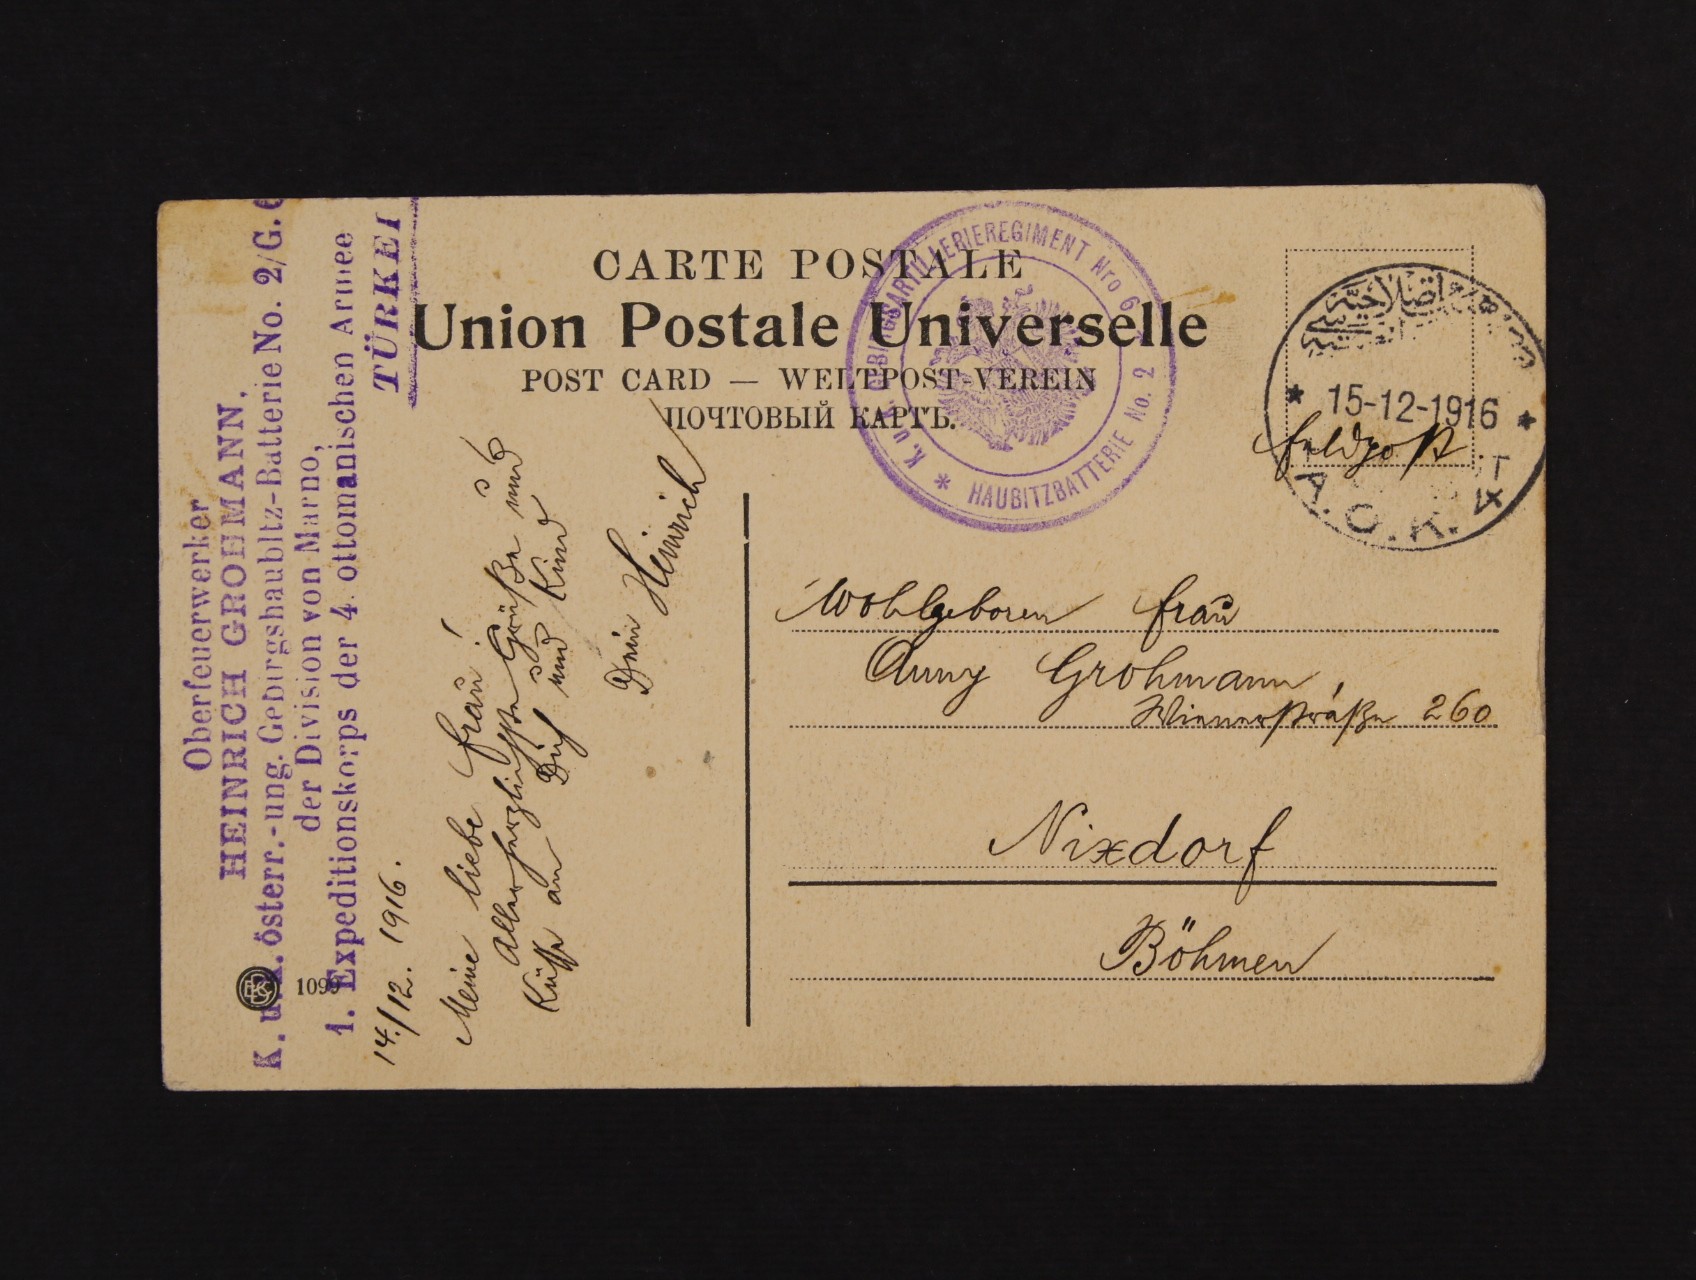 CARTE POSTALE
Union Postale Universelle
POST CARD — WELTPOST-VEREIN
ПОЧТОВЫЙ КАРТЪ.
Oberfeuerwerker
HEINRICH GROHMANN,
K. u. k. österr.-ung. Gebirgshaubitz-Batterie No. 2/G. 6
der Division von Marno,
1. Expeditionskorps der 4. ottomanischen Armee
TÜRKEI
K. u. k. GEBIRGSARTILLERIEREGIMENT Nro 6
HAUBITZBATTERIE No. 2
15-12-1916
A.O.K. IV
Feldpost.
14./12. 1916.
Meine liebe Frau!
Allerherzlichste Grüße und
Küsse an Dich und Kind
Dein Heinrich
Wohlgeboren Frau
Anny Grohmann,
Wienerstraße 260
Nixdorf
Böhmen
109